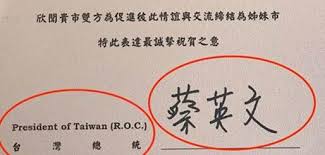 欣聞貴市雙方為促進彼此情誼與交流締結為姊妹市
特此表達最誠摯祝賀之意
President of Taiwan (R.O.C.)
蔡英文
台灣總統